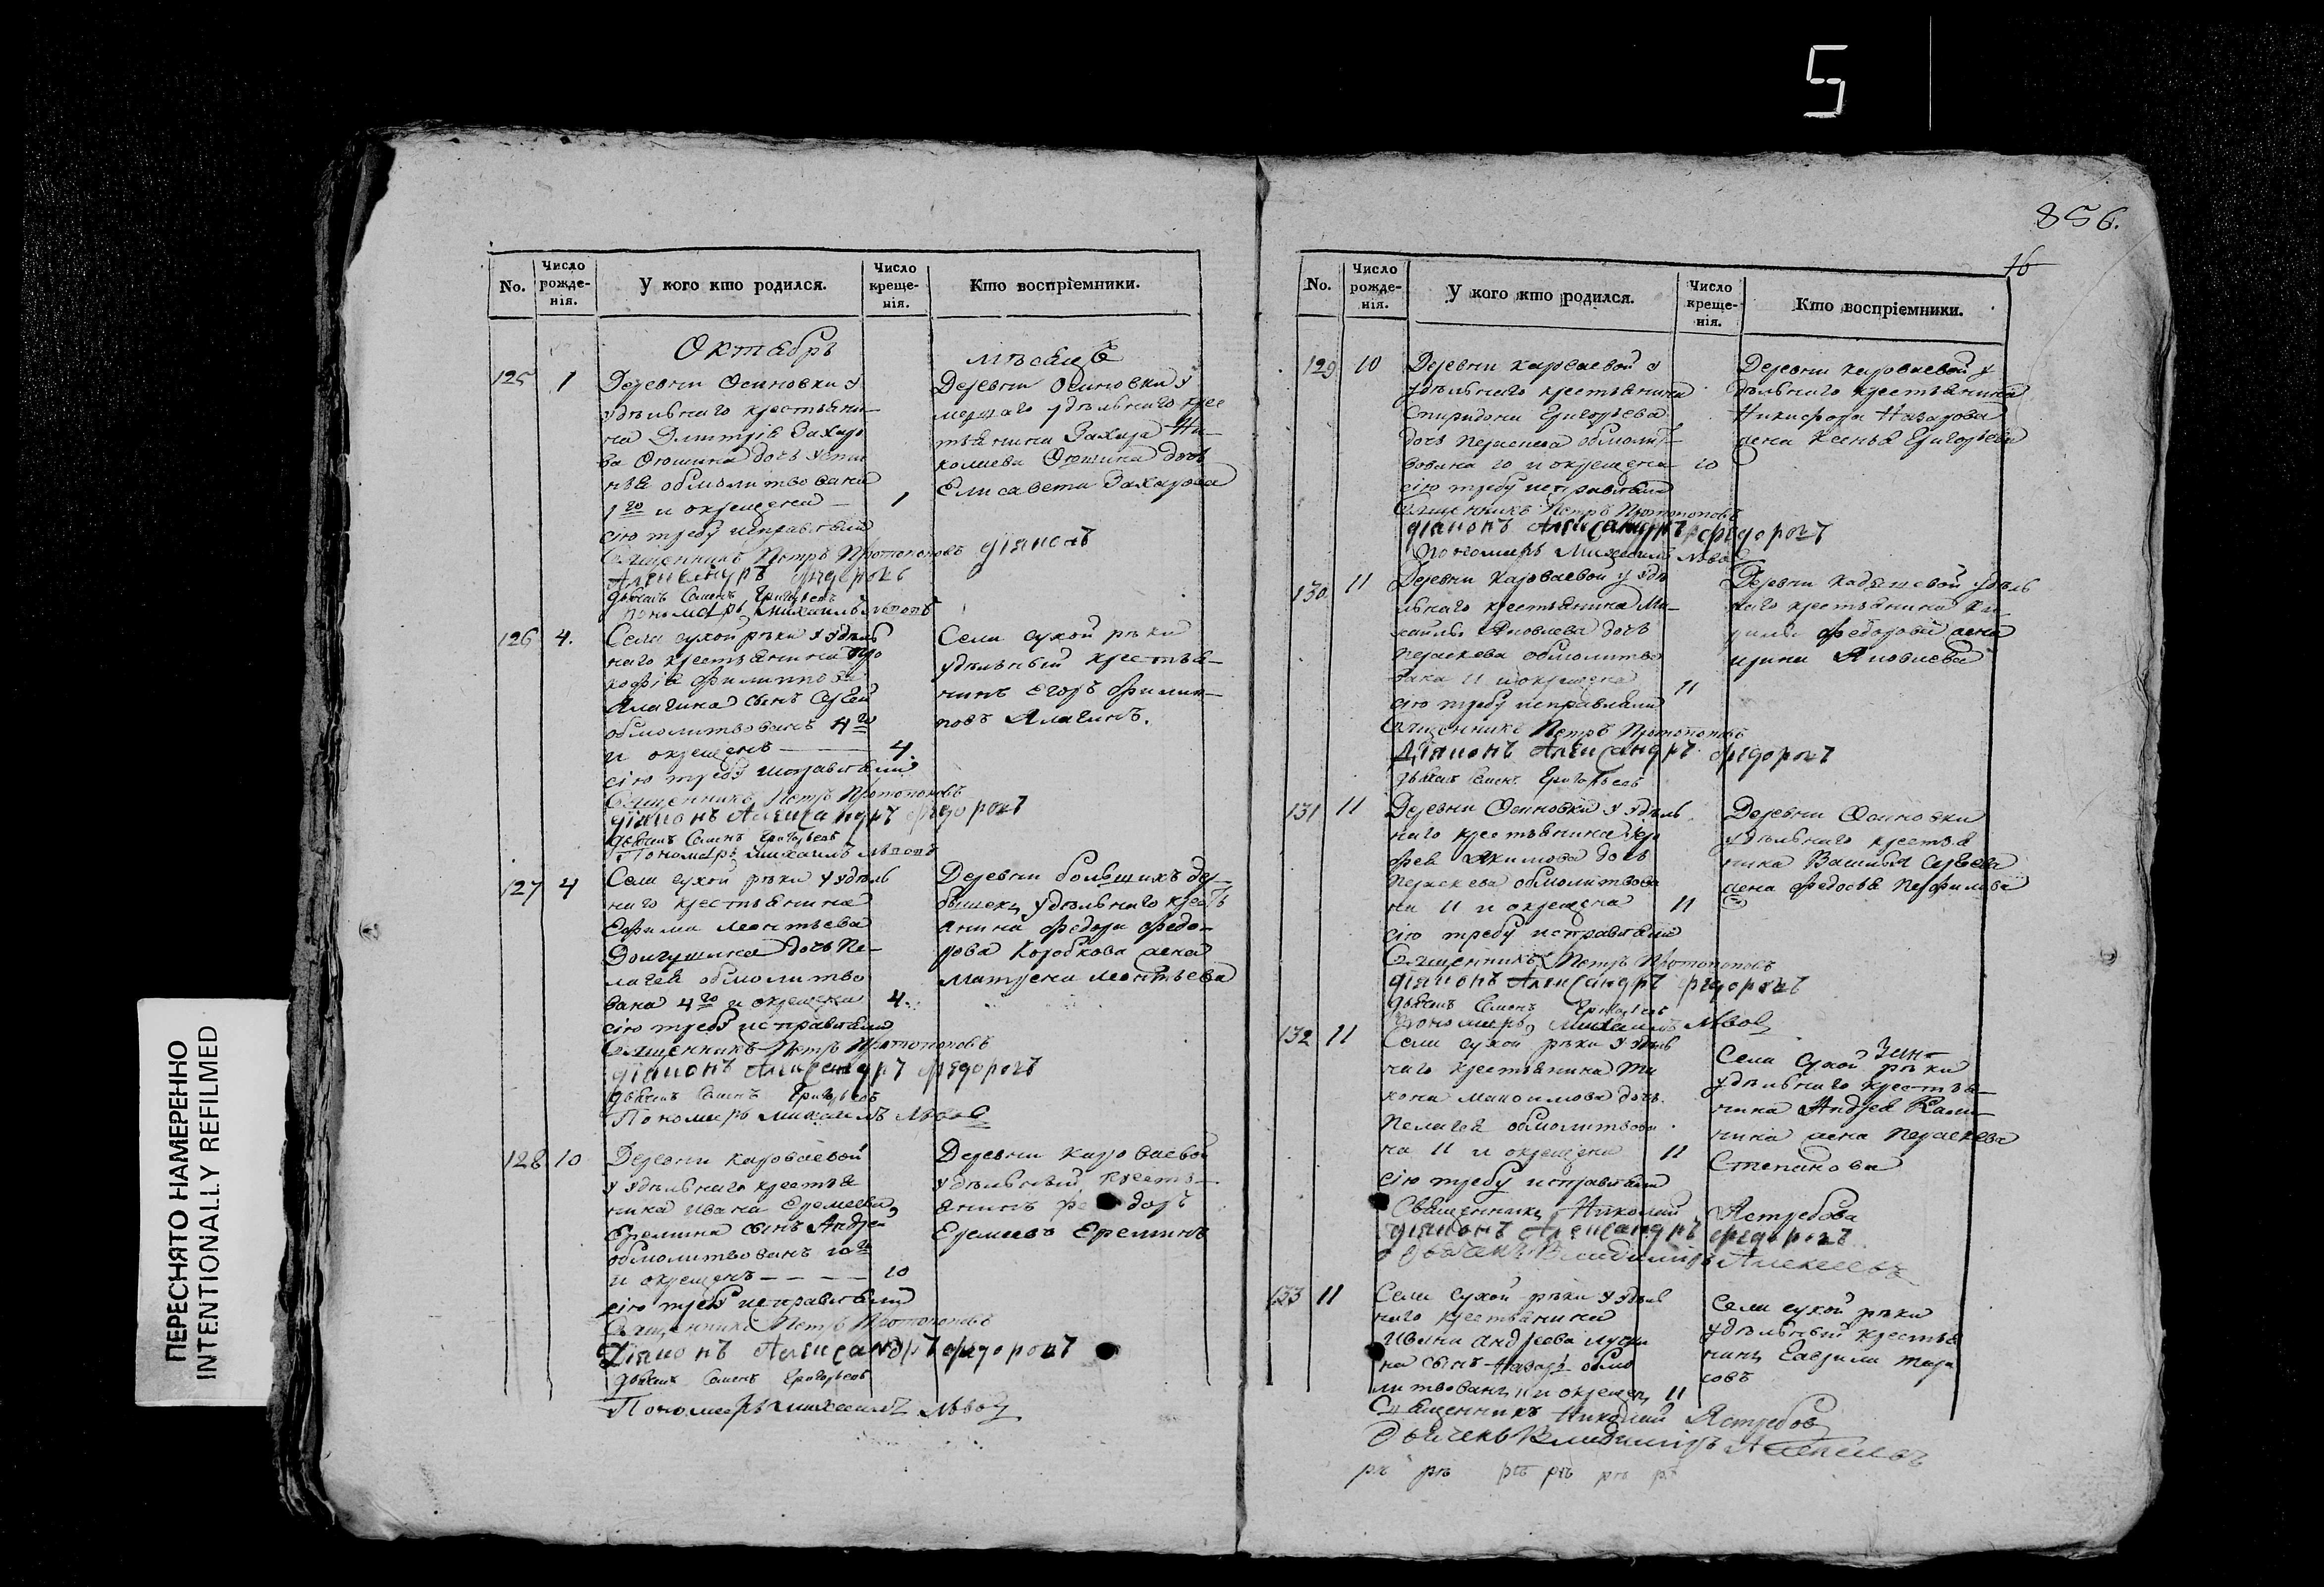 5
856.
16
ПЕРЕСНЯТО НАМЕРЕННО
INTENTIONALLY REFILMED
No. Число рожде-нія. У кого кто родился. Число креще-нія. Кто воспріемники.
Октябрь
125 1 Деревни Осиновки у
удѣльнаго крестьяни-
на Дмитрія Захаро
ва Оюшина дочь Усти
нья обмолитвована
1го и окрещена — 1
сію требу исправляли
Священникъ Петръ Протопоповъ діяконъ
Александръ Федоровъ
дьячекъ Семенъ Григорьевъ
пономарь Михаилъ
мѣсяцъ
Деревни Осиновки у
мершаго удѣльнаго крес
тьянина Захара Ни-
колаева Оюшина дочь
Елисавета Захарова
126 4. Села сухой рѣки у удѣль
наго крестьянина Про
кофія Филиппова
Алагина сынъ Сергей
обмолитвованъ 4го
и окрещенъ — 4.
сію требу исправляли
Священникъ Петръ Протопоповъ
діяконъ Александръ Федоровъ
дьячекъ Семенъ Григорьевъ
Пономарь Михаилъ
Села сухой рѣки
удѣльный крестья-
нинъ Егоръ Филип-
повъ Алагинъ.
127 4 Села сухой рѣки у удѣль
наго крестьянина
Ефима Леонтьева
Долгушина дочь Пе-
лагея обмолитво
вана 4го и окрещена 4.
сію требу исправляли
Священникъ Петръ Протопоповъ
діяконъ Александръ Федоровъ
дьячекъ Семенъ Григорьевъ
Пономарь Михаилъ Львовъ
Деревни большихъ ду-
бышекъ удѣльнаго крестъ
янина Федора Федо-
рова Коробкова жена
Матрена Леонтьева
128 10 Деревни Короваевой
у удѣльнаго крестья
нина Ивана Еремеева
Еремина сынъ Андрей
обмолитвованъ 10го
и окрещенъ — — — — 10
сію требу исправляли
Священникъ Петръ Протопоповъ
Діяконъ Александръ Федоровъ
дьячекъ Семенъ Григорьевъ
Пономарь Михаилъ Львовъ
Деревни Короваевой
удѣльный крестъ-
янинъ Фе доръ
Еремеевъ Ереминъ
No. Число рожде-нія. У кого кто родился. Число креще-нія. Кто воспріемники.
129 10 Деревни Короваевой у
удѣльнаго крестьянина
Спиридона Григорьева
дочь Параскева обмолит-
вована 10 и окрещена 10
сію требу исправляли
Священникъ Петръ Протопоповъ
діяконъ Александръ Федоровъ
Пономарь Михаилъ Львовъ
Деревни Короваевой у
дѣльнаго крестьянина
Никифора Назарова
жена Ксенья Григорьева
130 11 Деревни Короваевой у удѣ
льнаго крестьянина Ми-
хаила Яковлева дочь
Параскева обмолитво
вана 11 и окрещена 11
сію требу исправляли
Священникъ Петръ Протопоповъ
Діяконъ Александръ Федоровъ
дьячекъ Семенъ Григорьевъ
Деревни удѣль
наго крестьянина
Федорова жена
Ирина Яковлева
131 11 Деревни Осиновки у удѣль
наго крестьянина
Якимова дочь
Параскева обмолитвова
на 11 и окрещена 11
сію требу исправляли
Священникъ Петръ Протопоповъ
діяконъ Александръ Федоровъ
дьячекъ Семенъ Григорьевъ
Пономарь Михаилъ Львовъ
Деревни Осиновки
удѣльнаго крестья
нина Василья Сергеева
жена Федосья Перфильева
132 11 Села сухой рѣки у удѣль
наго крестьянина Ти
хона Максимова дочь
Пелагея обмолитвова
на 11 и окрещена 11
сію требу исправляли
Священникъ Николай Ястребовъ
діяконъ Александръ Федоровъ
дьячекъ Владимиръ Алексеевъ
Села Сухой рѣки
удѣльнаго крестья-
нина Андрея Кали-
нина жена Параскева
Степанова
133 11 Села Сухой рѣки у удѣль
наго крестьянина
Ивана Андреева
на сынъ Назаръ обмо
литвованъ 11 и окрещенъ 11
Священникъ Николай Ястребовъ
дьячекъ Владимиръ Алексеевъ
Села сухой рѣки
удѣльный крестья
нинъ Гаврила Тара
совъ